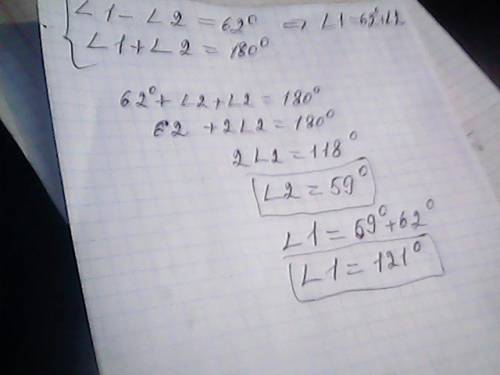 ∠1 - ∠2 = 62° => ∠1 = 62° + ∠2
∠1 + ∠2 = 180°
62° + ∠2 + ∠2 = 180°
62 + 2∠2 = 180°
2∠2 = 118°
∠2 = 59°
∠1 = 59° + 62°
∠1 = 121°